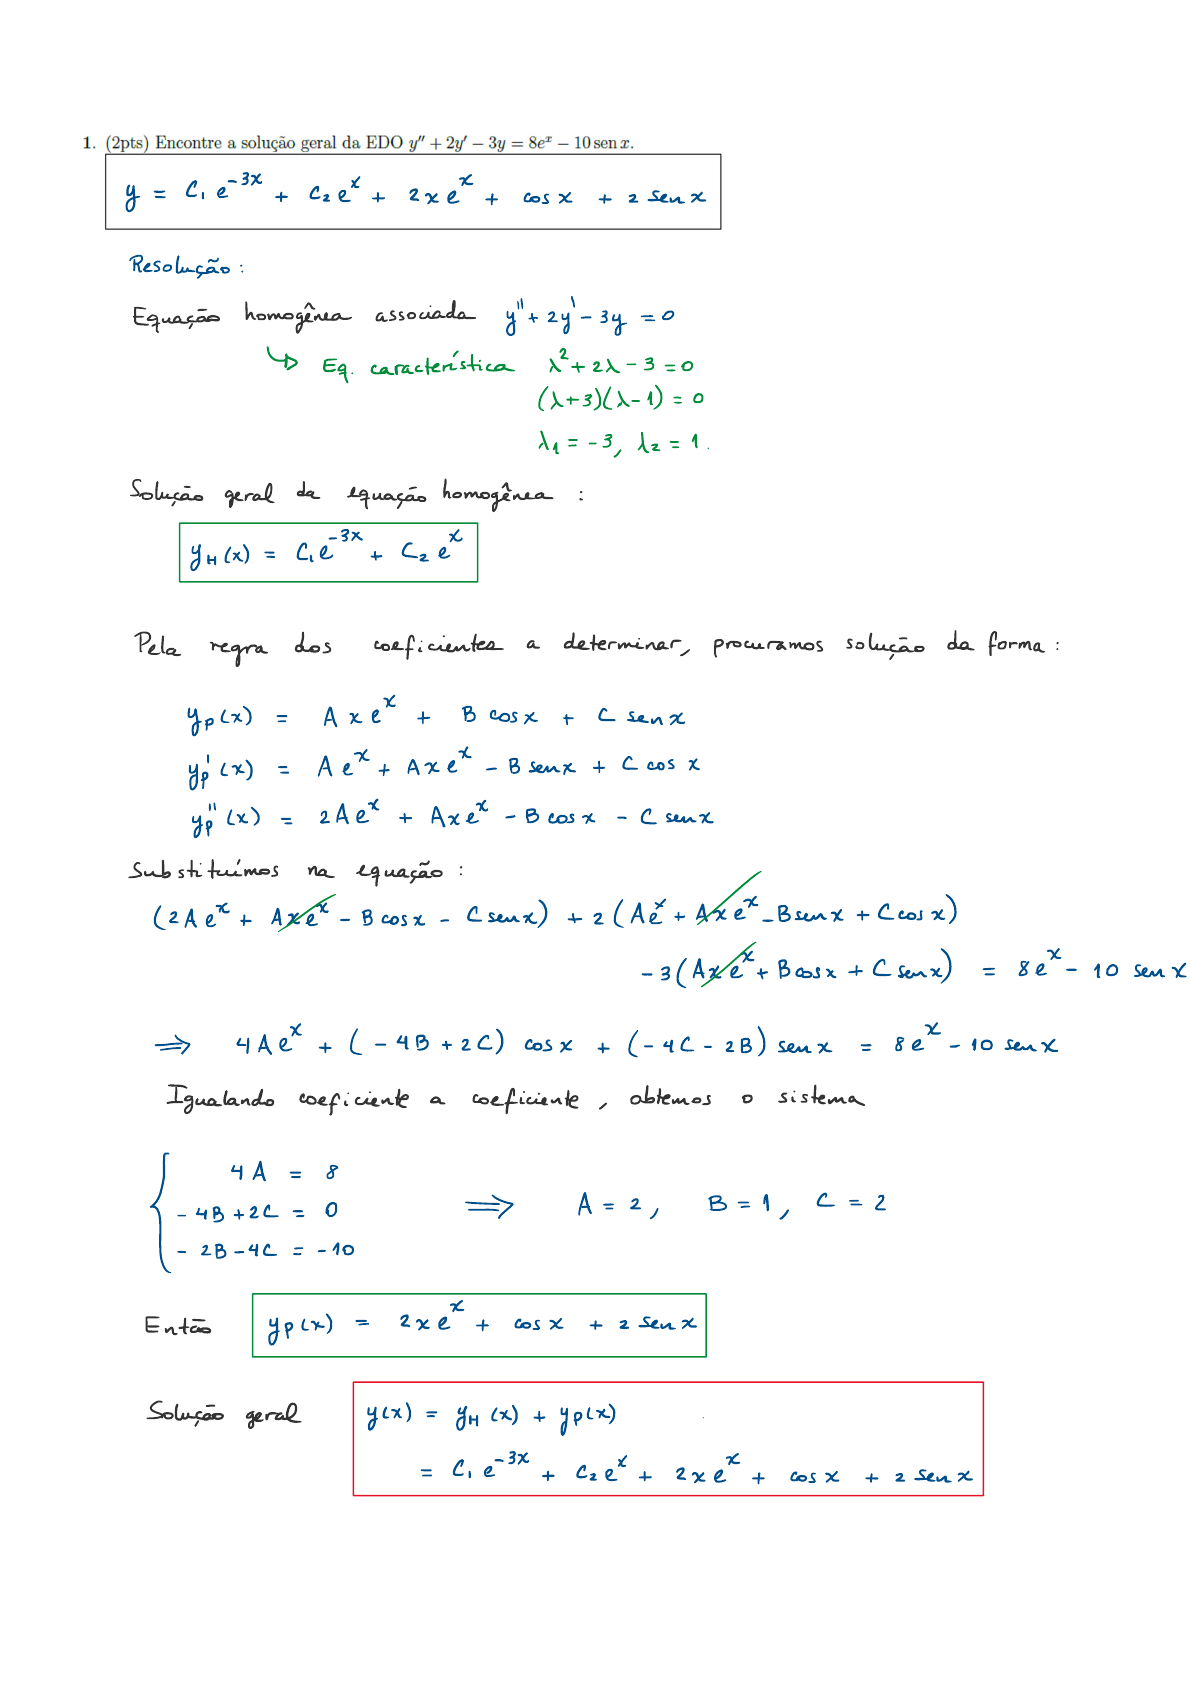 1. (2pts) Encontre a solução geral da EDO y″ + 2y′ − 3y = 8eˣ − 10 sen x.
y = C₁ e⁻³ˣ + C₂ eˣ + 2x eˣ + cos x + 2 sen x
Resolução :
Equação homogênea associada y″ + 2y′ − 3y = 0
↳ Eq. característica λ² + 2λ − 3 = 0
(λ+3)(λ−1) = 0
λ₁ = −3, λ₂ = 1.
Solução geral da equação homogênea :
y_H(x) = C₁ e⁻³ˣ + C₂ eˣ
Pela regra dos coeficientes a determinar, procuramos solução da forma :
y_p(x) = A x eˣ + B cos x + C sen x
y_p′(x) = A eˣ + A x eˣ − B sen x + C cos x
y_p″(x) = 2A eˣ + A x eˣ − B cos x − C sen x
Substituímos na equação :
(2A eˣ + A x eˣ − B cos x − C sen x) + 2(A eˣ + A x eˣ − B sen x + C cos x)
− 3(A x eˣ + B cos x + C sen x) = 8eˣ − 10 sen x
⟹ 4A eˣ + (−4B + 2C) cos x + (−4C − 2B) sen x = 8eˣ − 10 sen x
Igualando coeficiente a coeficiente, obtemos o sistema
4A = 8
−4B + 2C = 0 ⟹ A = 2, B = 1, C = 2
−2B − 4C = −10
Então y_P(x) = 2x eˣ + cos x + 2 sen x
Solução geral y(x) = y_H(x) + y_P(x)
= C₁ e⁻³ˣ + C₂ eˣ + 2x eˣ + cos x + 2 sen x